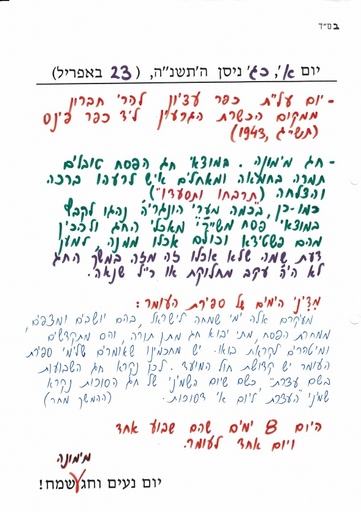 בס״ד
יום א׳, כג׳ ניסן ה׳תשנ״ה, (23 באפריל)
- יום עלית כפר עציון להרי חברון
ממקום הכשרת הגרעין ליד כפר פינס
(תש״ג, 1943)
- חג מימונה. במוצאי חג הפסח טובלים
תמרה בחמאה ומאחלים איש לרעהו ברכה
והצלחה ("תרבחו ותסעדו")
כמו-כן, בכמה מערי הונגריה נהגו לקבץ
במוצאי פסח משיירי מאכלי החג ולהכין
מהם פשטידא וכולם אכלו ממנה, למען
דעת שמה שלא אכלו זה מזה במשך החג
לא היה עקב מחלוקת או ח״ו שנאה.
מדיני הימים של ספירת העומר:
מעיקרם אלה ימי שמחה לישראל, בהם יושבים ומצפים,
ממחרת הפסח, מתי יבוא חג מתן תורה, והם מתקדשים
ומיטהרים לקראת בואו. יש מחכמינו שאומרים שלימי ספירת
העומר יש קדושת חול המועד. לכן נקרא חג השבועות
בשם "עצרת", כשם שיום השמיני של חג הסוכות נקרא
שמיני "העצרת" ליום א׳ דסוכות. (ההמשך מחר)
היום 8 ימים שהם שבוע אחד
ויום אחד לעומר.
מימונה
יום נעים וחג שמח!